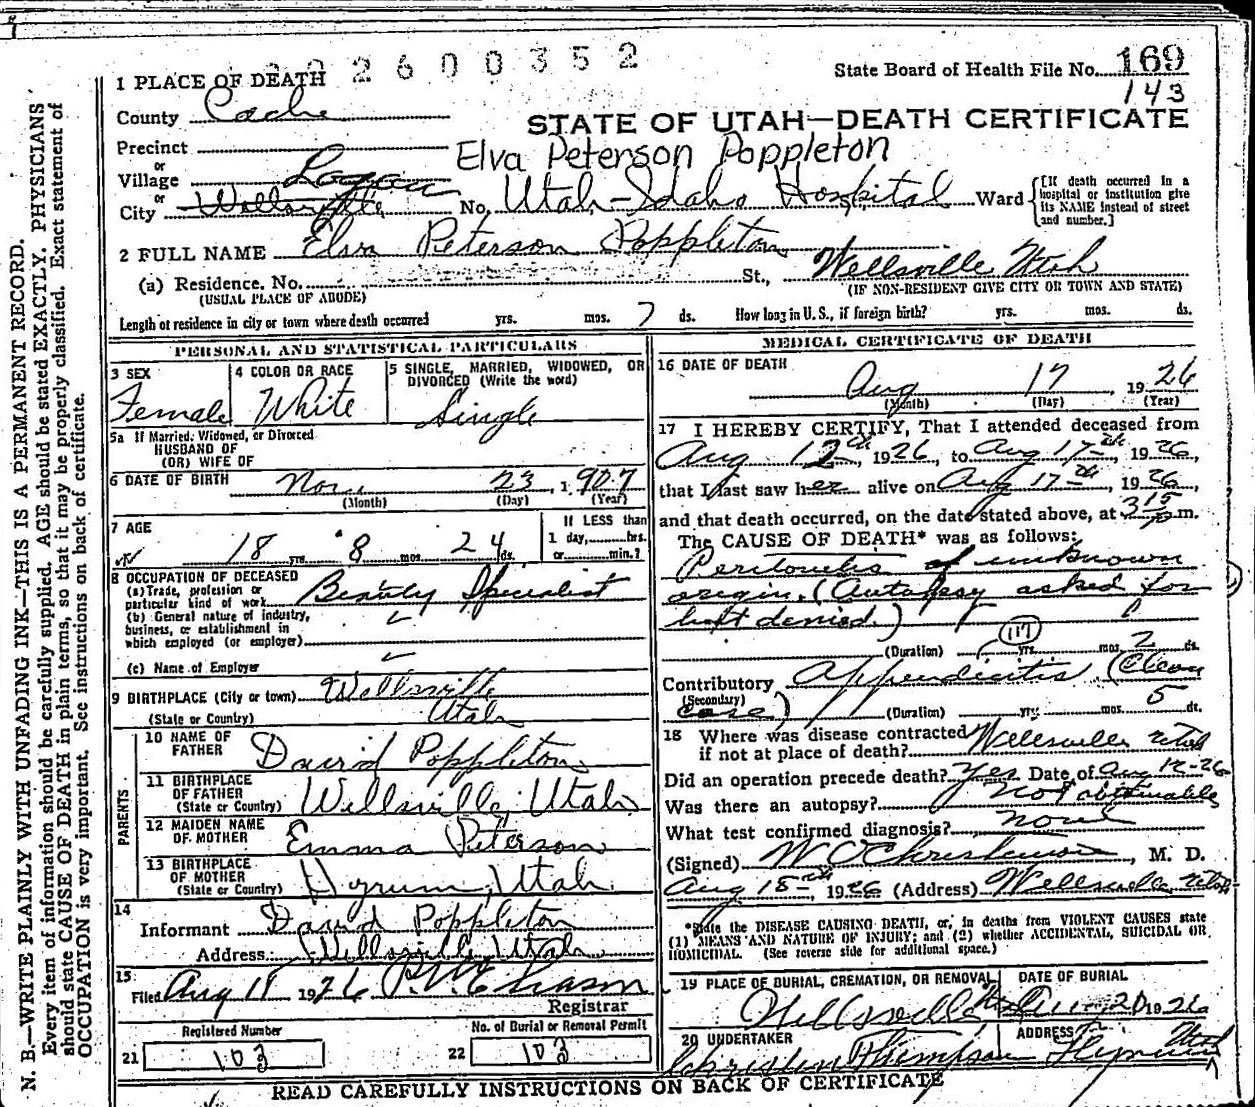 2600352
1 PLACE OF DEATH
State Board of Health File No. 169
143
County Cache
STATE OF UTAH—DEATH CERTIFICATE
Precinct
Elva Peterson Poppleton
or
Village Logan
or
City Wellsville No. Utah-Idaho Hospital St. Ward
[If death occurred in a hospital or institution give its NAME instead of street and number.]
2 FULL NAME Elva Peterson Poppleton
(a) Residence. No. St., Wellsville Utah
(USUAL PLACE OF ABODE) (IF NON-RESIDENT GIVE CITY OR TOWN AND STATE)
Length of residence in city or town where death occurred yrs. mos. 7 ds. How long in U. S., if foreign birth? yrs. mos. ds.
PERSONAL AND STATISTICAL PARTICULARS
3 SEX
Female
4 COLOR OR RACE
White
5 SINGLE, MARRIED, WIDOWED, OR
DIVORCED (Write the word)
Single
5a If Married, Widowed, or Divorced
HUSBAND OF
(OR) WIFE OF
6 DATE OF BIRTH Nov. 23, 1907
(Month) (Day) (Year)
7 AGE
18 yrs. 8 mos. 24 ds.
If LESS than
1 day, hrs.
or min.?
8 OCCUPATION OF DECEASED
(a) Trade, profession or
particular kind of work Beauty Specialist
(b) General nature of industry,
business, or establishment in
which employed (or employer)
(c) Name of Employer
9 BIRTHPLACE (City or town) Wellsville
(State or Country) Utah
PARENTS
10 NAME OF
FATHER David Poppleton
11 BIRTHPLACE
OF FATHER
(State or Country) Wellsville, Utah
12 MAIDEN NAME
OF MOTHER Emma Peterson
13 BIRTHPLACE
OF MOTHER
(State or Country) Hyrum, Utah
14
Informant David Poppleton
Address Wellsville, Utah
15
Filed Aug 18 1926
Registrar
Registered Number
21 103
No. of Burial or Removal Permit
22 103
MEDICAL CERTIFICATE OF DEATH
16 DATE OF DEATH
Aug 17 1926
(Month) (Day) (Year)
17 I HEREBY CERTIFY, That I attended deceased from
Aug 12th, 1926, to Aug 17th, 1926,
that I last saw her alive on Aug 17th, 1926,
and that death occurred, on the date stated above, at 315 p m.
The CAUSE OF DEATH* was as follows:
Peritonitis of unknown
origin. (Autopsy asked for
but denied.)
117
(Duration) yrs. mos. 2 ds.
Contributory Appendicitis (Clean
(Secondary)
case) (Duration) yrs. mos. 5 ds.
18 Where was disease contracted
if not at place of death? Wellsville Utah
Did an operation precede death? Yes Date of Aug 12-26
Was there an autopsy? Not obtainable
What test confirmed diagnosis? None
(Signed) W O Christensen, M. D.
Aug 18th, 1926 (Address) Wellsville, Utah
*State the DISEASE CAUSING DEATH, or, in deaths from VIOLENT CAUSES state
(1) MEANS AND NATURE OF INJURY; and (2) whether ACCIDENTAL, SUICIDAL OR
HOMICIDAL. (See reverse side for additional space.)
19 PLACE OF BURIAL, CREMATION, OR REMOVAL
Wellsville
DATE OF BURIAL
Aug 20 1926
20 UNDERTAKER
Thompson
ADDRESS
Hyrum Utah
READ CAREFULLY INSTRUCTIONS ON BACK OF CERTIFICATE
N. B.—WRITE PLAINLY WITH UNFADING INK—THIS IS A PERMANENT RECORD.
Every item of information should be carefully supplied. AGE should be stated EXACTLY. PHYSICIANS
should state CAUSE OF DEATH in plain terms, so that it may be properly classified. Exact statement of
OCCUPATION is very important. See instructions on back of certificate.